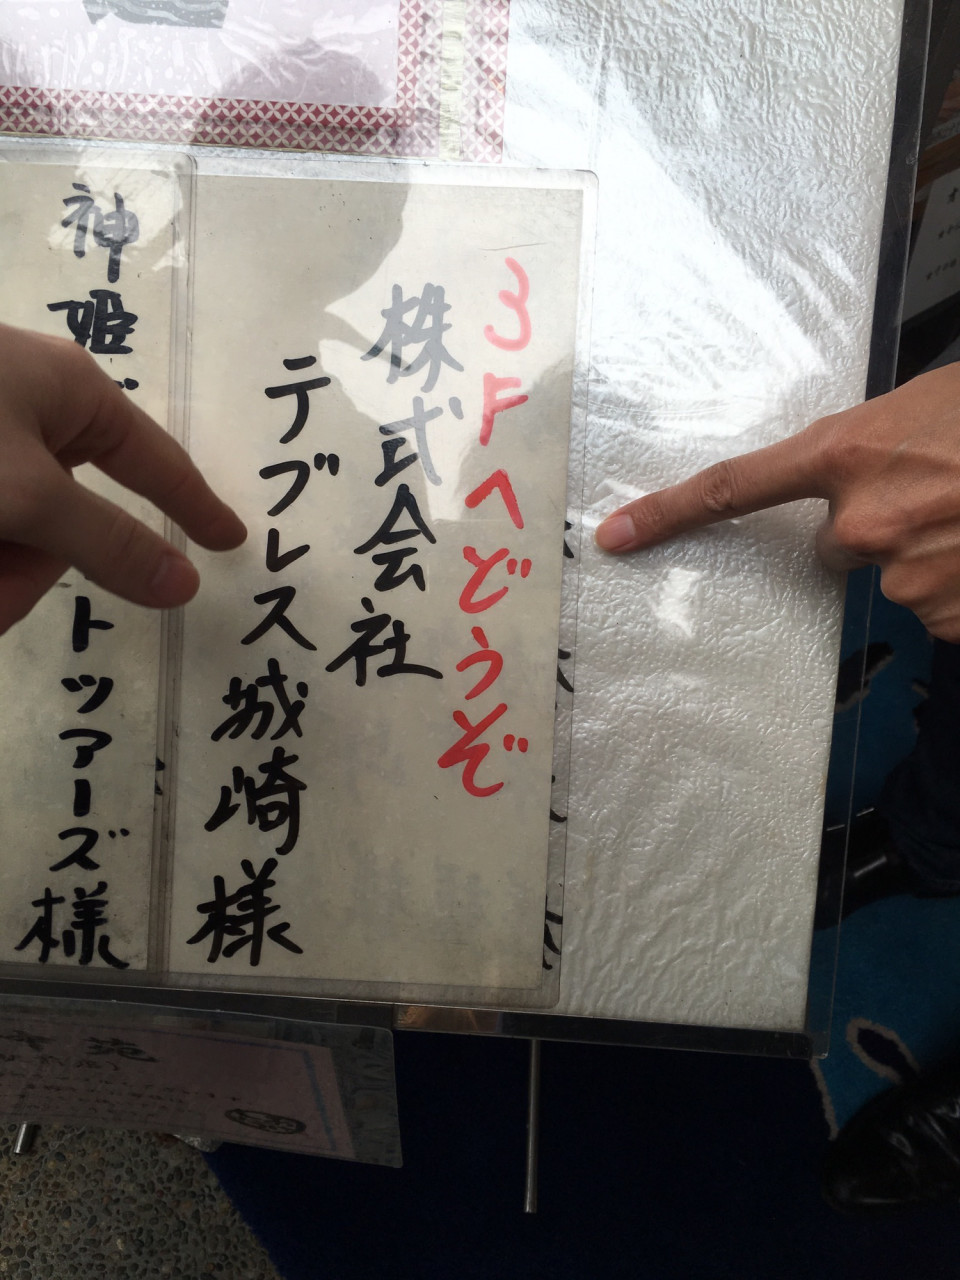 3Fへどうぞ
株式会社
テプレス城崎様
神姫
トツアーズ様
苑